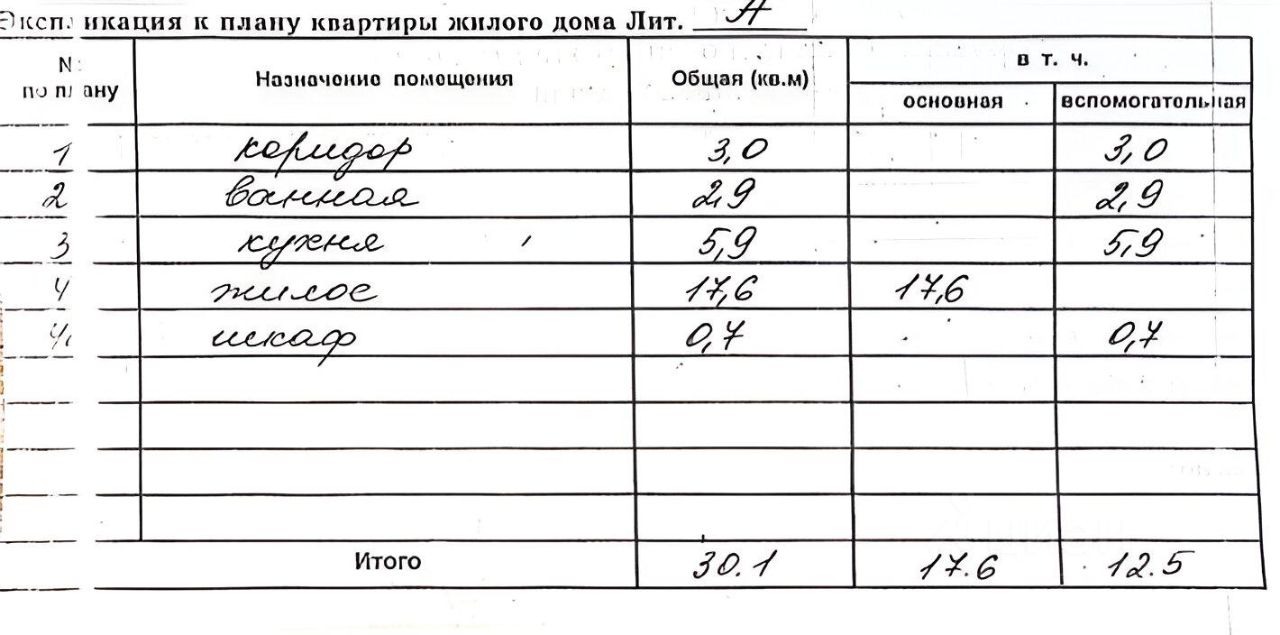 Экспликация к плану квартиры жилого дома Лит. А
№ по плану Назначение помещения Общая (кв.м) в т. ч.
основная вспомогательная
1 коридор 3,0 3,0
2 ванная 2,9 2,9
3 кухня 5,9 5,9
4 жилое 17,6 17,6
шкаф 0,7 0,7
Итого 30.1 17.6 12.5